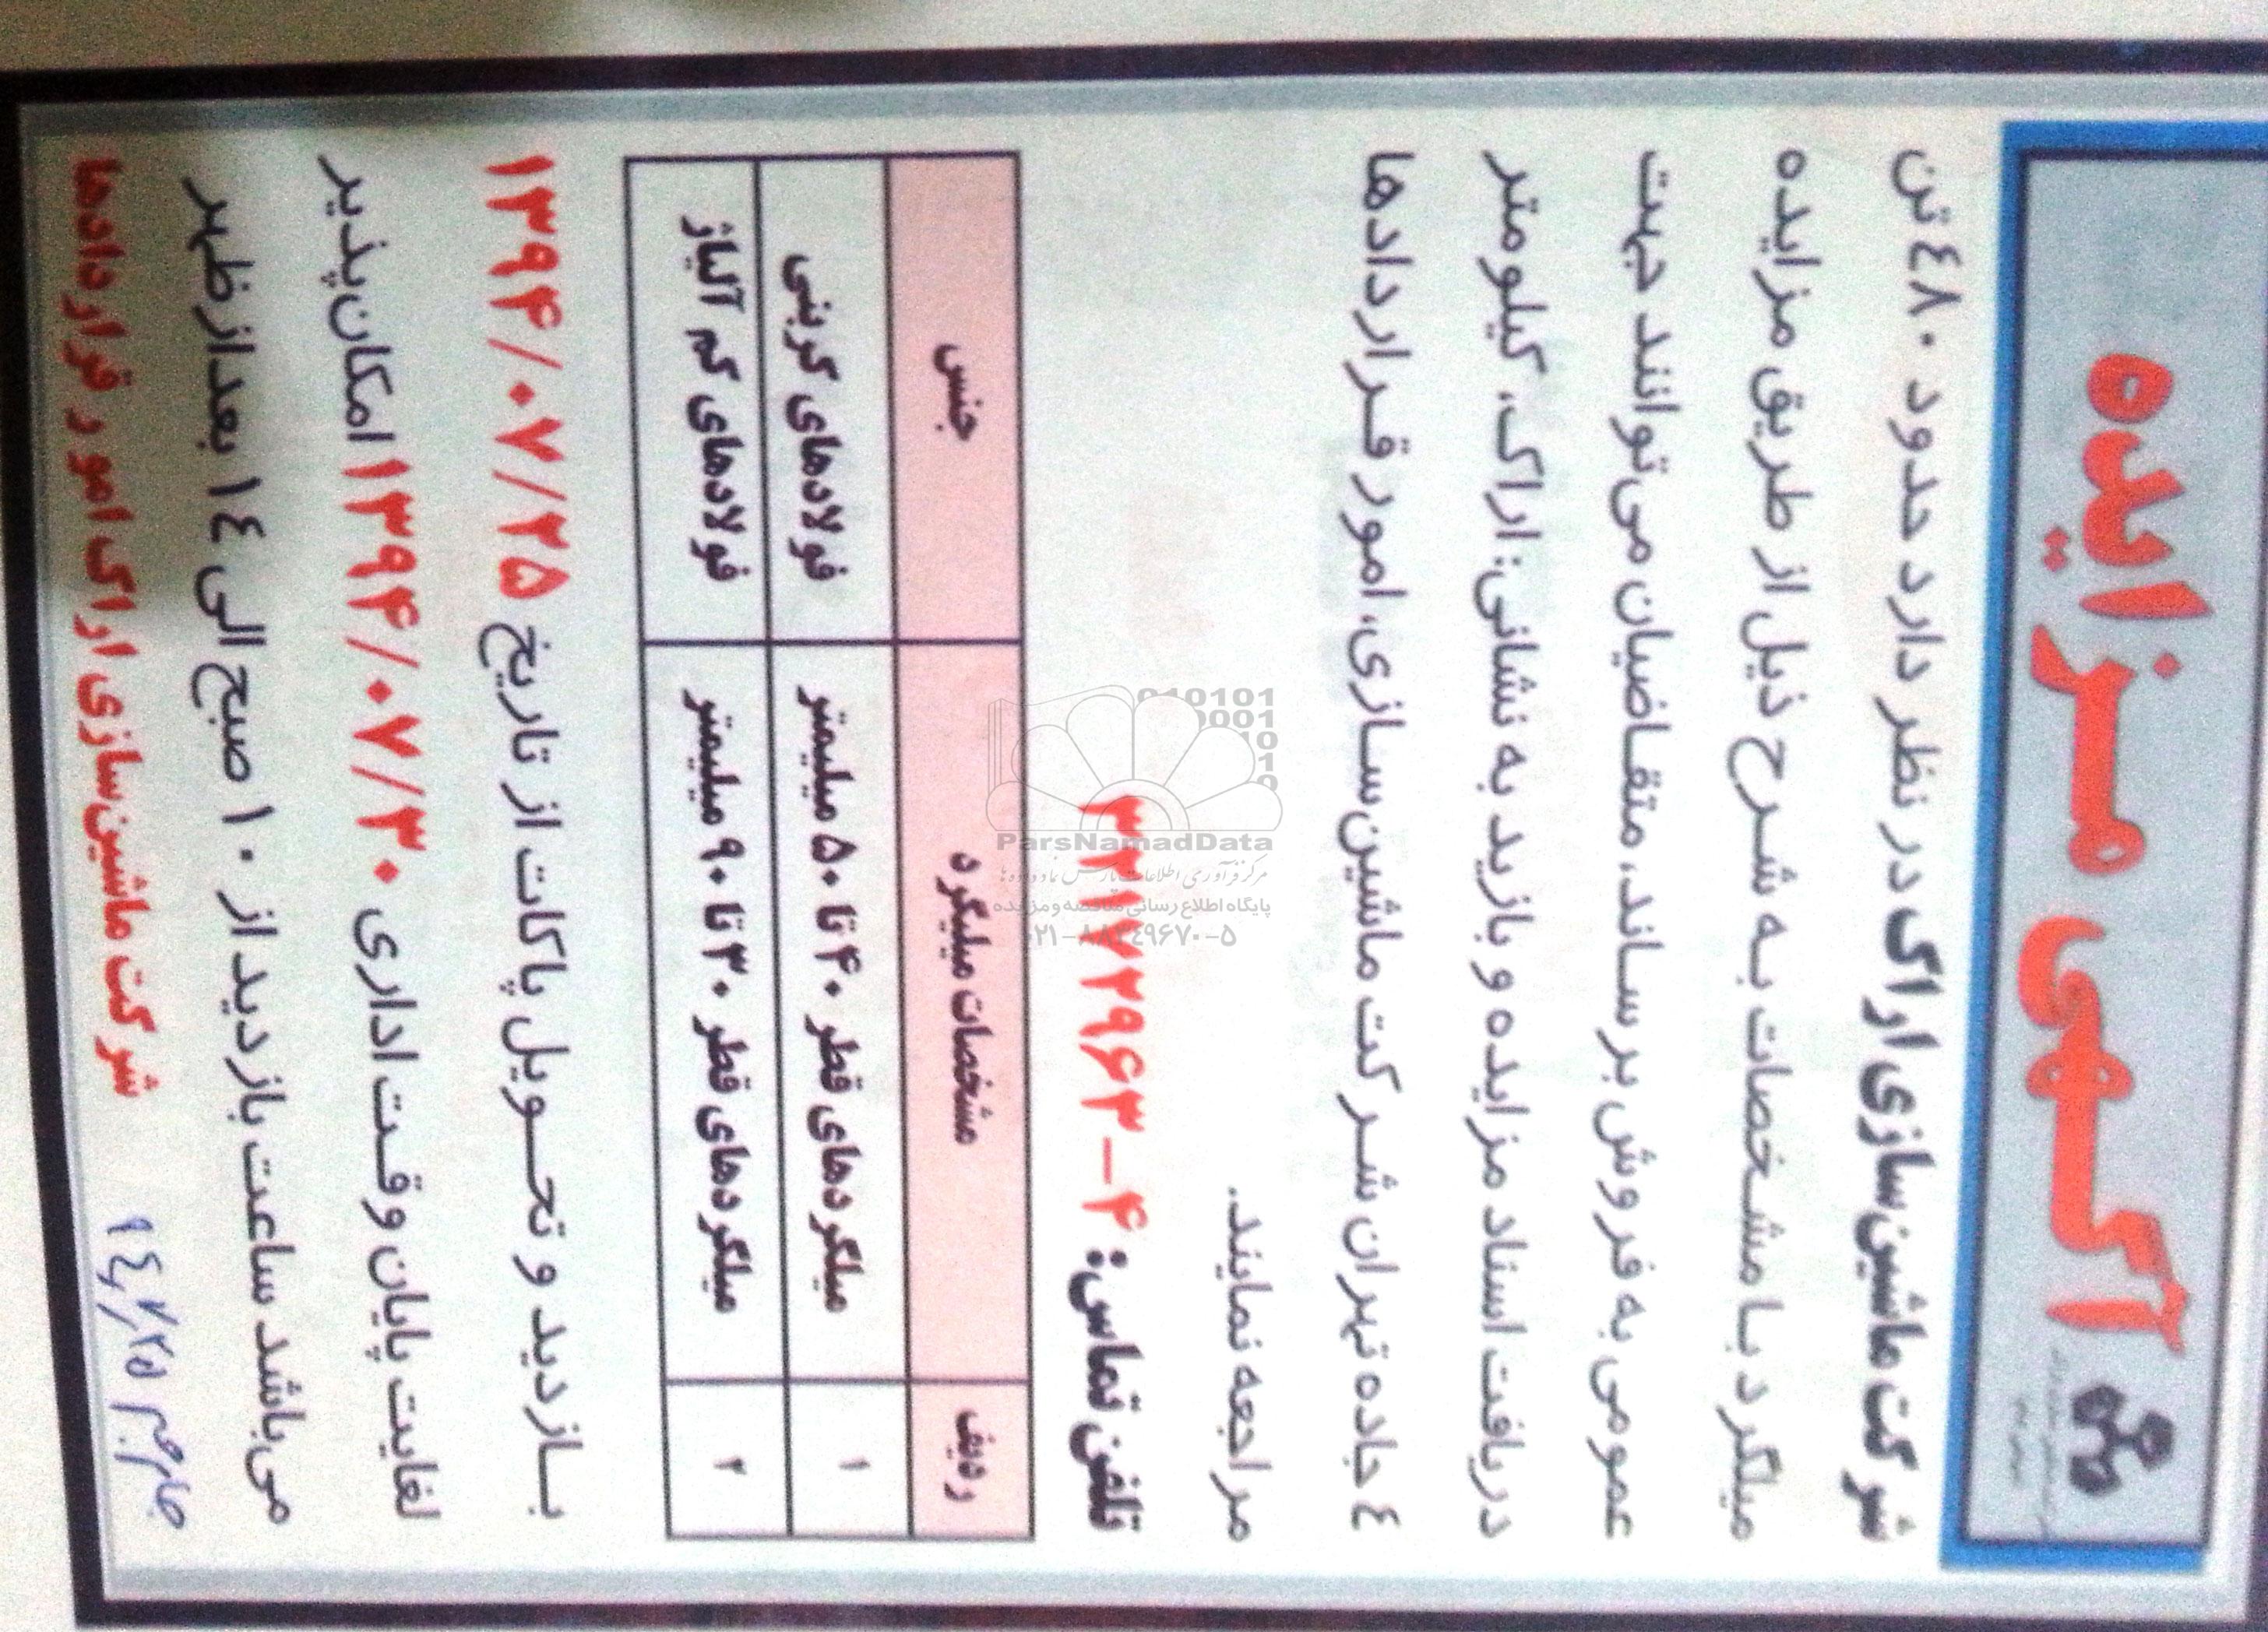 آگهی مزایده
شرکت ماشین‌سازی اراک در نظر دارد حدود ٤٨٠ تن
میلگرد با مشخصات به شرح ذیل از طریق مزایده
عمومی به فروش برساند، متقاضیان می‌توانند جهت
دریافت اسناد مزایده و بازدید به نشانی: اراک، کیلومتر
٤ جاده تهران شرکت ماشین‌سازی، امور قراردادها
مراجعه نمایند.
تلفن تماس: ۴-۳۲۱۷۲۹۶۳
ردیف	مشخصات میلیگرد	جنس
۱	میلگردهای قطر ۴۰ تا ۵۰ میلیمتر	فولادهای کربنی
۲	میلگردهای قطر ۳۰ تا ۹۰ میلیمتر	فولادهای کم آلیاژ
بازدید و تحویل پاکات از تاریخ ۱۳۹۴/۰۷/۲۵
لغایت پایان وقت اداری ۱۳۹۴/۰۷/۳۰ امکان‌پذیر
می‌باشد ساعت بازدید از ۱۰ صبح الی ۱٤ بعد از ظهر
شرکت ماشین‌سازی اراک امور قراردادها
ParsNamadData
مرکز فرآوری اطلاعات پارس نماد داده ها
پایگاه اطلاع رسانی مناقصه و مزایده
۰۲۱-۸۸۳٤۹۶۷۰-۵